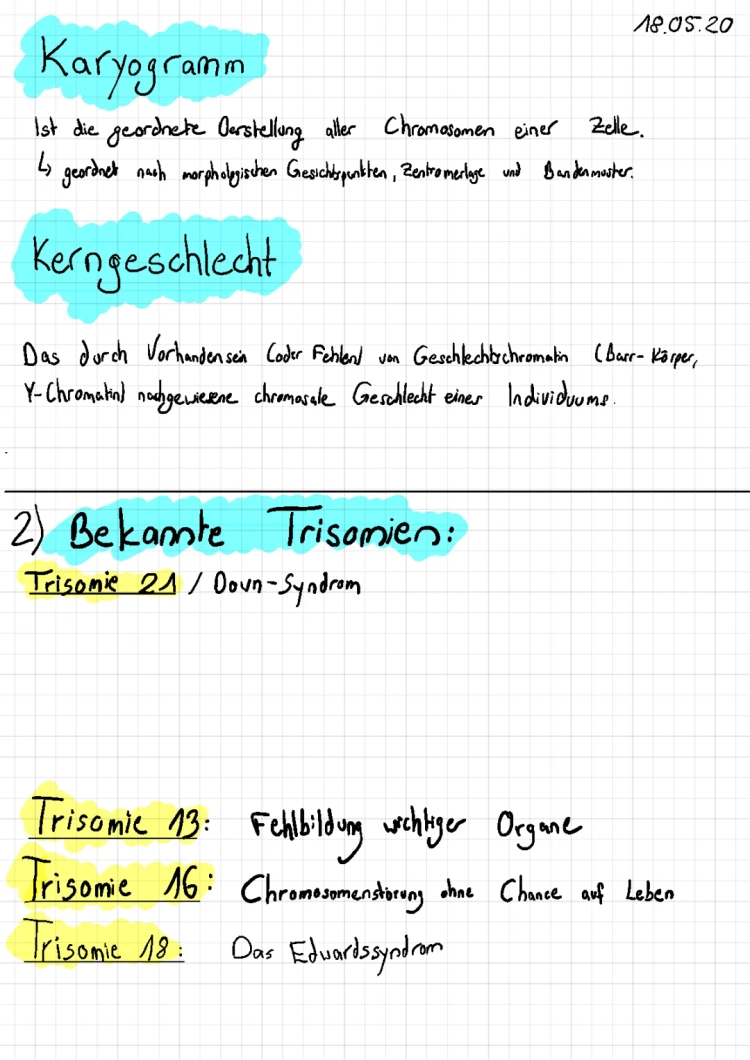 18.05.20
Karyogramm
Ist die geordnete Darstellung aller Chromosomen einer Zelle.
↳ geordnet nach morphologischen Gesichtspunkten, Zentromerlage und Bandenmuster.
Kerngeschlecht
Das durch Vorhandensein (oder Fehlen) von Geschlechtschromatin (Barr-Körper,
Y-Chromatin) nachgewiesene chromosale Geschlecht eines Individuums.
2) Bekannte Trisomien:
Trisomie 21 / Down-Syndrom
Trisomie 13: Fehlbildung wichtiger Organe
Trisomie 16: Chromosomenstörung ohne Chance auf Leben
Trisomie 18: Das Edwardssyndrom